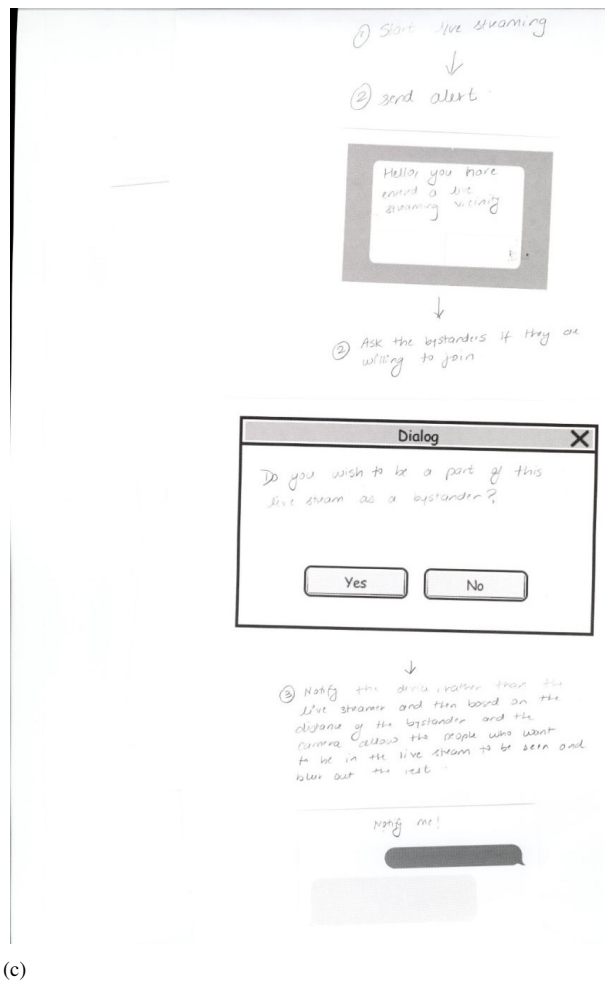 ① Start live streaming
② send alert
Hello, you have
entered a live
streaming vicinity
② Ask the bystanders if they are
willing to join
Dialog
Do you wish to be a part of this
live stream as a bystander?
Yes No
③ Notify the device rather than the
live streamer and then based on the
distance of the bystander and the
camera allow the people who want
to be in the live stream to be seen and
blur out the rest
Notify me!
(c)